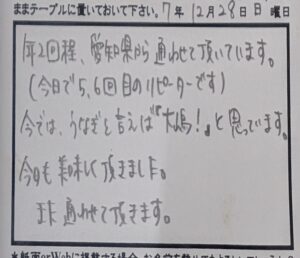 ままテーブルに置いておいて下さい。7年 12月 28日 日 曜日
年2回程、愛知県から通わせて頂いています。
(今日で5,6回目のリピーターです)
今では、うなぎと言えば『大嶋!』と思っています。
今日も美味しく頂きました。
また通わせて頂きます。